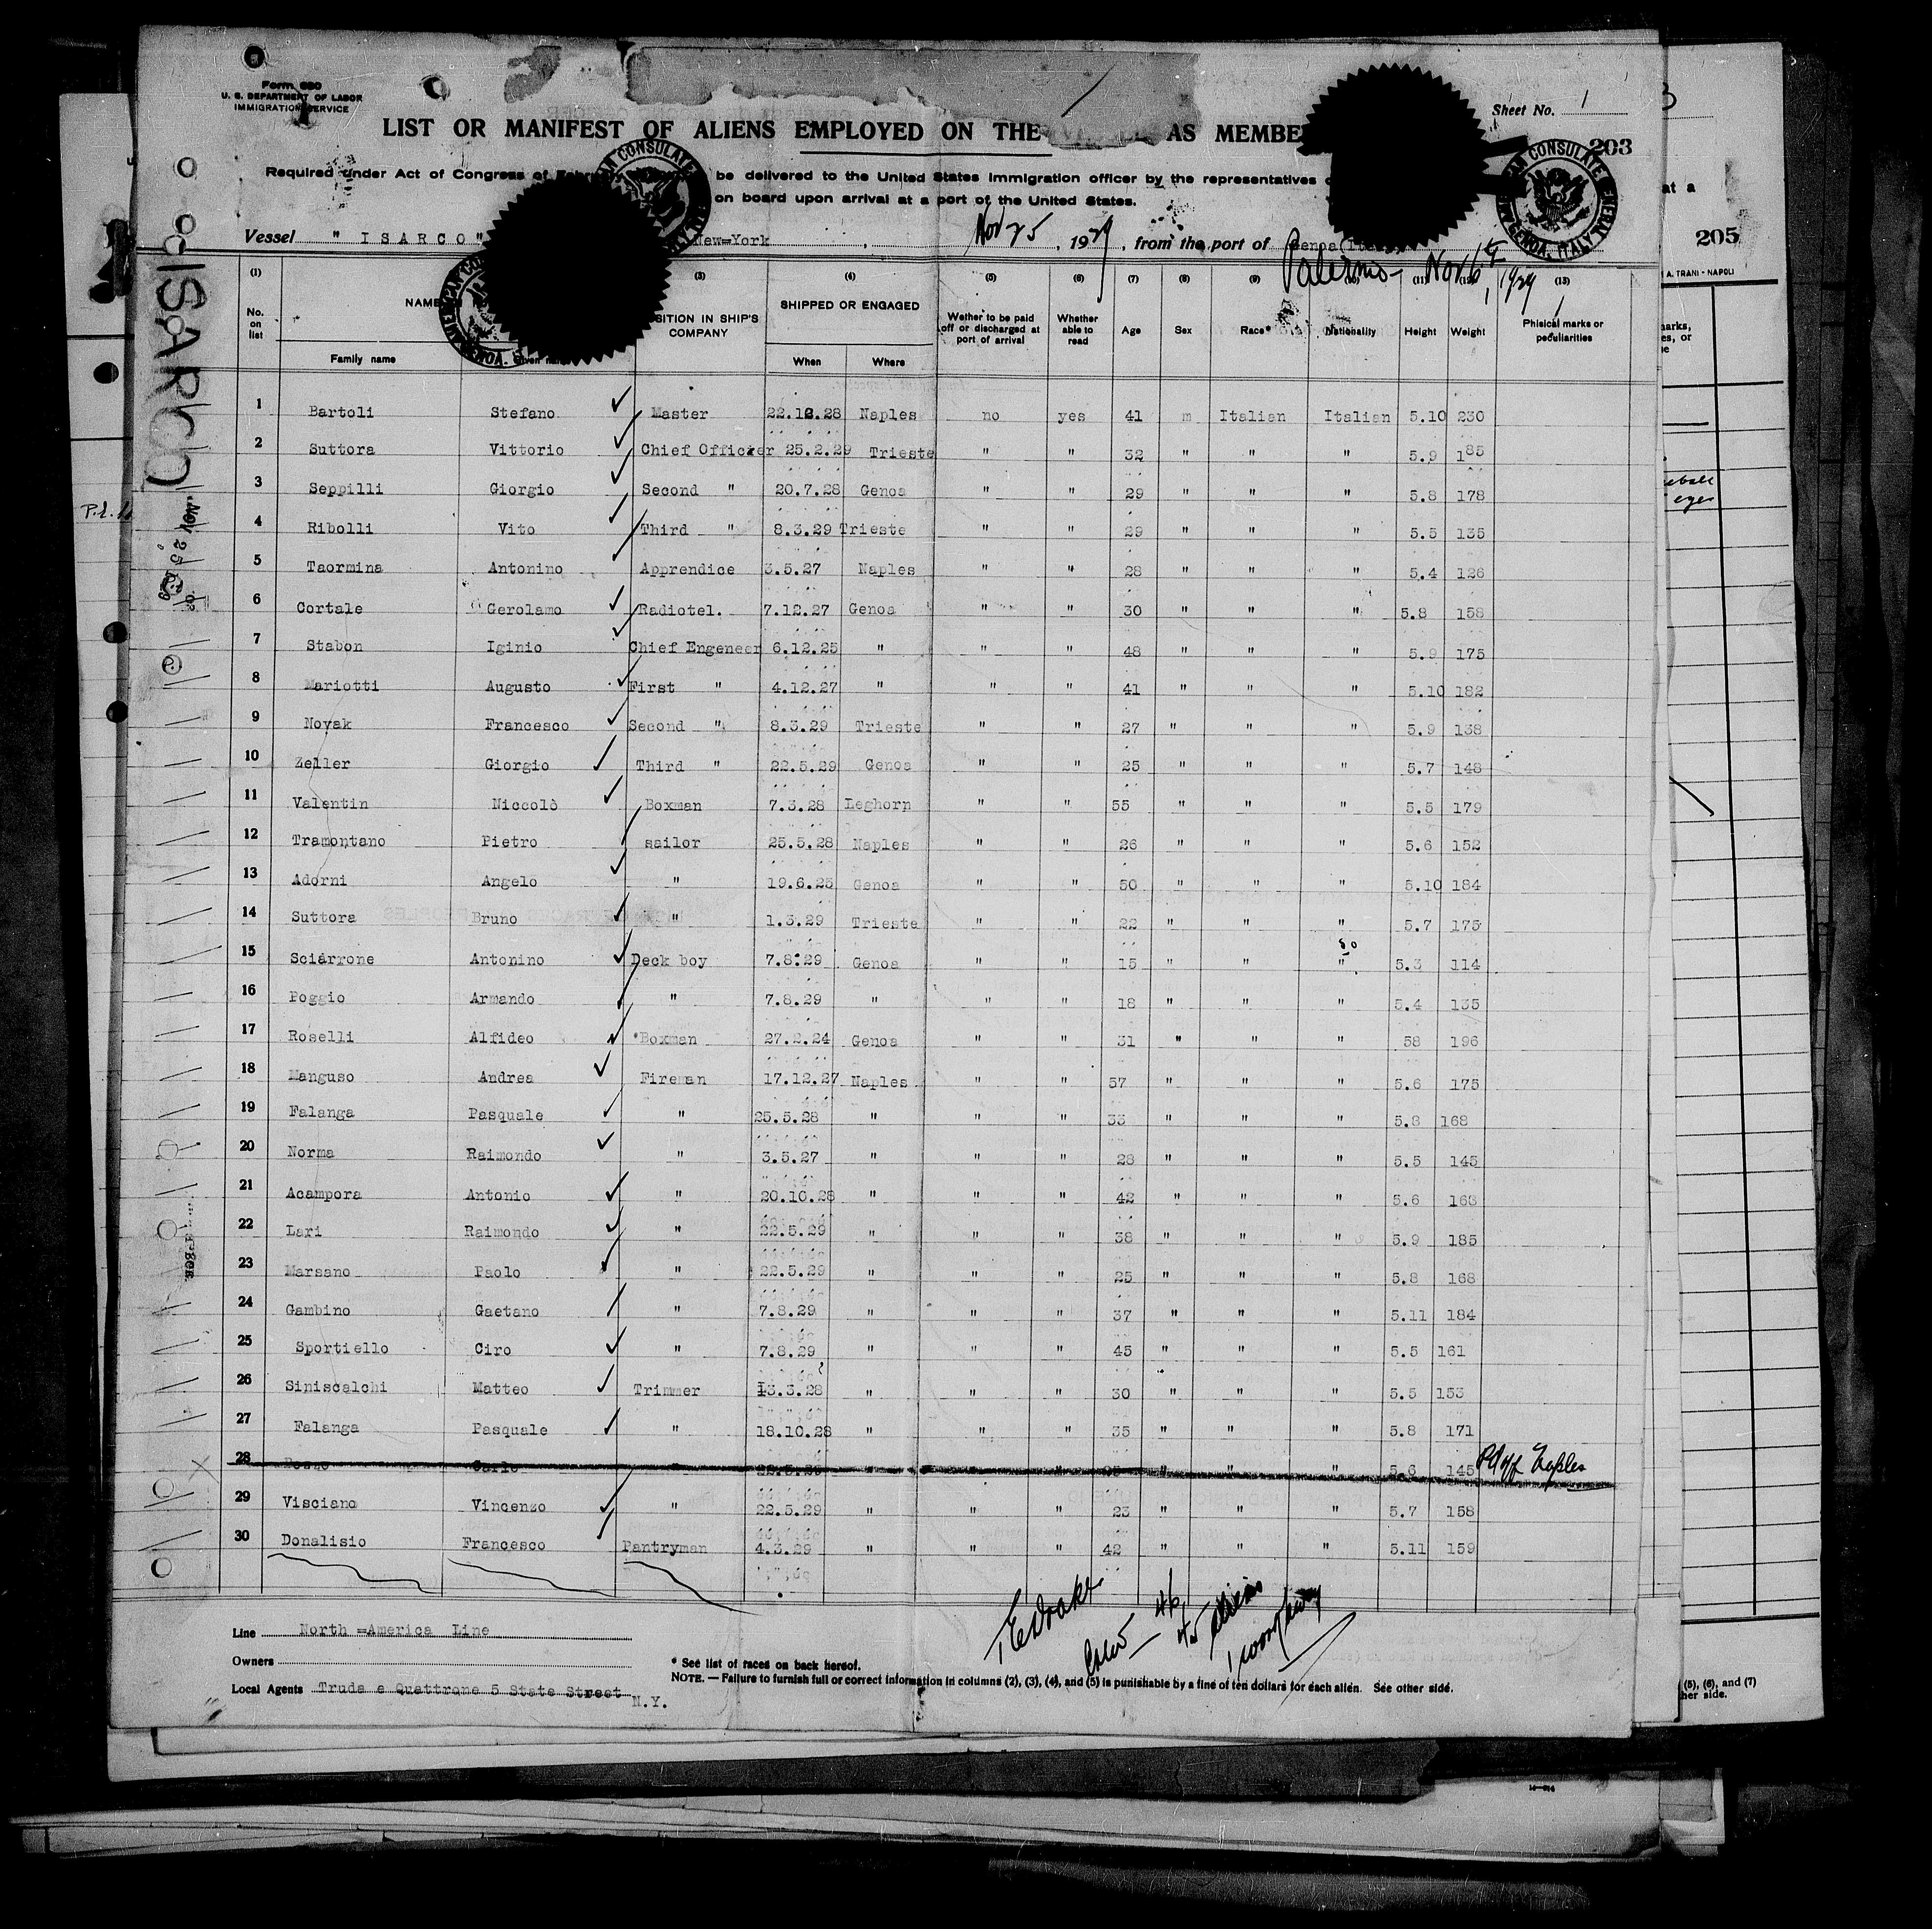 Form 680
U. S. DEPARTMENT OF LABOR
IMMIGRATION SERVICE
Sheet No. 1
LIST OR MANIFEST OF ALIENS EMPLOYED ON THE AS MEMBE
203
Required under Act of Congress of be delivered to the United States Immigration officer by the representatives
on board upon arrival at a port of the United States.
Vessel " ISARCO" New=York , Nov 25 , 1929 , from the port of Genoa
Palermo - Nov 1929
AMERICAN CONSULATE GENERAL GENOA, ITALY
ISARCO
NOV 25
205
A. TRANI - NAPOLI
at a
(1) (3) (4) (5) (6) (7) (8) (9) (11) (13)
No. on list
Family name
POSITION IN SHIP'S COMPANY
SHIPPED OR ENGAGED
When Where
Wether to be paid off or discharged at port of arrival
Whether able to read
Age Sex Race* Nationality Height Weight
Phisical marks or peculiarities
1 Bartoli Stefano Master 22.12.28 Naples no yes 41 m Italian Italian 5.10 230
2 Suttora Vittorio Chief Officer 25.2.29 Trieste " " 32 " " " 5.9 185
3 Seppilli Giorgio Second " 20.7.28 Genoa " " 29 " " " 5.8 178
4 Ribolli Vito Third " 8.3.29 Trieste " " 29 " " " 5.5 135
5 Taormina Antonino Apprendice 3.5.27 Naples " " 28 " " " 5.4 126
6 Cortale Gerolamo Radiotel. 7.12.27 Genoa " " 30 " " " 5.8 158
7 Stabon Iginio Chief Engeneer 6.12.25 " " " 48 " " " 5.9 175
8 Mariotti Augusto First " 4.12.27 " " " 41 " " " 5.10 182
9 Novak Francesco Second " 8.3.29 Trieste " " 27 " " " 5.9 138
10 Zeller Giorgio Third " 22.5.29 Genoa " " 25 " " " 5.7 148
11 Valentin Niccolò Boxman 7.3.28 Leghorn " " 55 " " " 5.5 179
12 Tramontano Pietro sailor 25.5.28 Naples " " 26 " " " 5.6 152
13 Adorni Angelo " 19.6.25 Genoa " " 50 " " " 5.10 184
14 Suttora Bruno " 1.3.29 Trieste " " 22 " " " 5.7 175
15 Sciarrone Antonino Deck boy 7.8.29 Genoa " " 15 " " " 5.3 114
16 Poggio Armando " 7.8.29 " " " 18 " " " 5.4 135
17 Roselli Alfideo Boxman 27.2.24 Genoa " " 31 " " " 58 196
18 Manguso Andrea Fireman 17.12.27 Naples " " 57 " " " 5.6 175
19 Falanga Pasquale " 25.5.28 " " " 33 " " " 5.8 168
20 Norma Raimondo " 3.5.27 " " " 28 " " " 5.5 145
21 Acampora Antonio " 20.10.28 " " " 42 " " " 5.6 168
22 Lari Raimondo " 22.5.29 " " " 38 " " " 5.9 185
23 Marsano Paolo " 22.5.29 " " " 25 " " " 5.8 168
24 Gambino Gaetano " 7.8.29 " " " 37 " " " 5.11 184
25 Sportiello Ciro " 7.8.29 " " " 45 " " " 5.5 161
26 Siniscalchi Matteo Trimmer 13.3.28 " " " 30 " " " 5.5 153
27 Falanga Pasquale " 18.10.28 " " " 35 " " " 5.8 171
28 Carlo " " " " " " " 5.6 145 Pd off Naples
29 Visciano Vincenzo " 22.5.29 " " " 23 " " " 5.7 158
30 Donalisio Francesco Pantryman 4.3.29 " " " 42 " " " 5.11 159
Crew - 46
45 aliens
Line North =America Line
Owners
Local Agents Truda e Quattrone 5 State Street N.Y.
* See list of races on back hereof.
NOTE. — Failure to furnish full or correct information in columns (2), (3), (4), and (5) is punishable by a fine of ten dollars for each alien. See other side.
(5), (6), and (7)
her side.